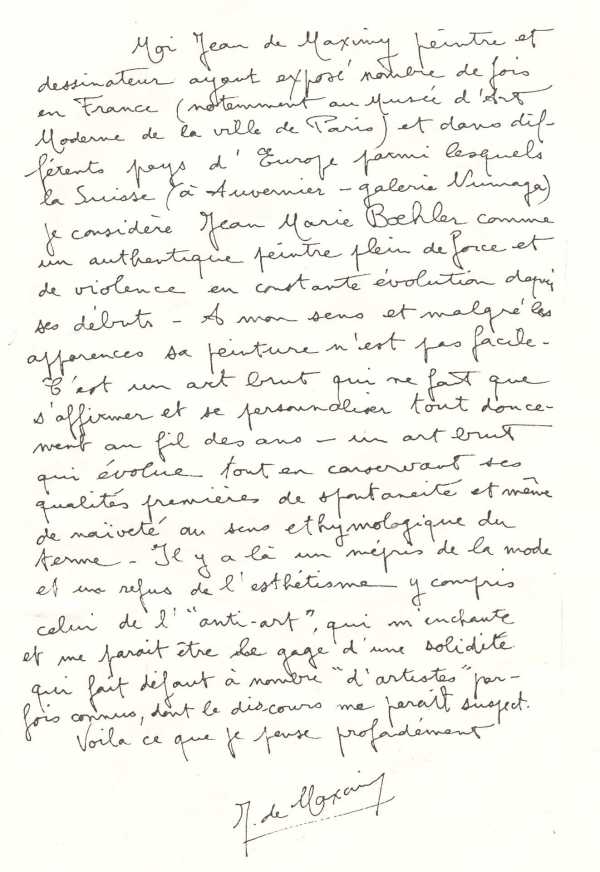 Moi Jean de Maximy peintre et
dessinateur ayant exposé nombre de fois
en France (notemment au Musée d'Art
Moderne de la ville de Paris) et dans dif-
férents pays d'Europe parmi lesquels
la Suisse (à Auvernier - galerie Numaga)
je considère Jean Marie Bœhler comme
un authentique peintre plein de force et
de violence en constante évolution depuis
ses débuts - A mon sens et malgré les
apparences sa peinture n'est pas facile -
C'est un art brut qui ne fait que
s'affirmer et se personnaliser tout douce-
ment au fil des ans - un art brut
qui évolue tout en conservant ses
qualités premières de spontaneité et même
de naïveté au sens ethymologique du
terme - Il y a là un mépris de la mode
et un refus de l'esthétisme y compris
celui de l'"anti-art", qui m'enchante
et me parait être le gage d'une solidité
qui fait défaut à nombre "d'artistes" par-
fois connus, dont le discours me paraît suspect.
Voila ce que je pense profondément
J. de Maximy